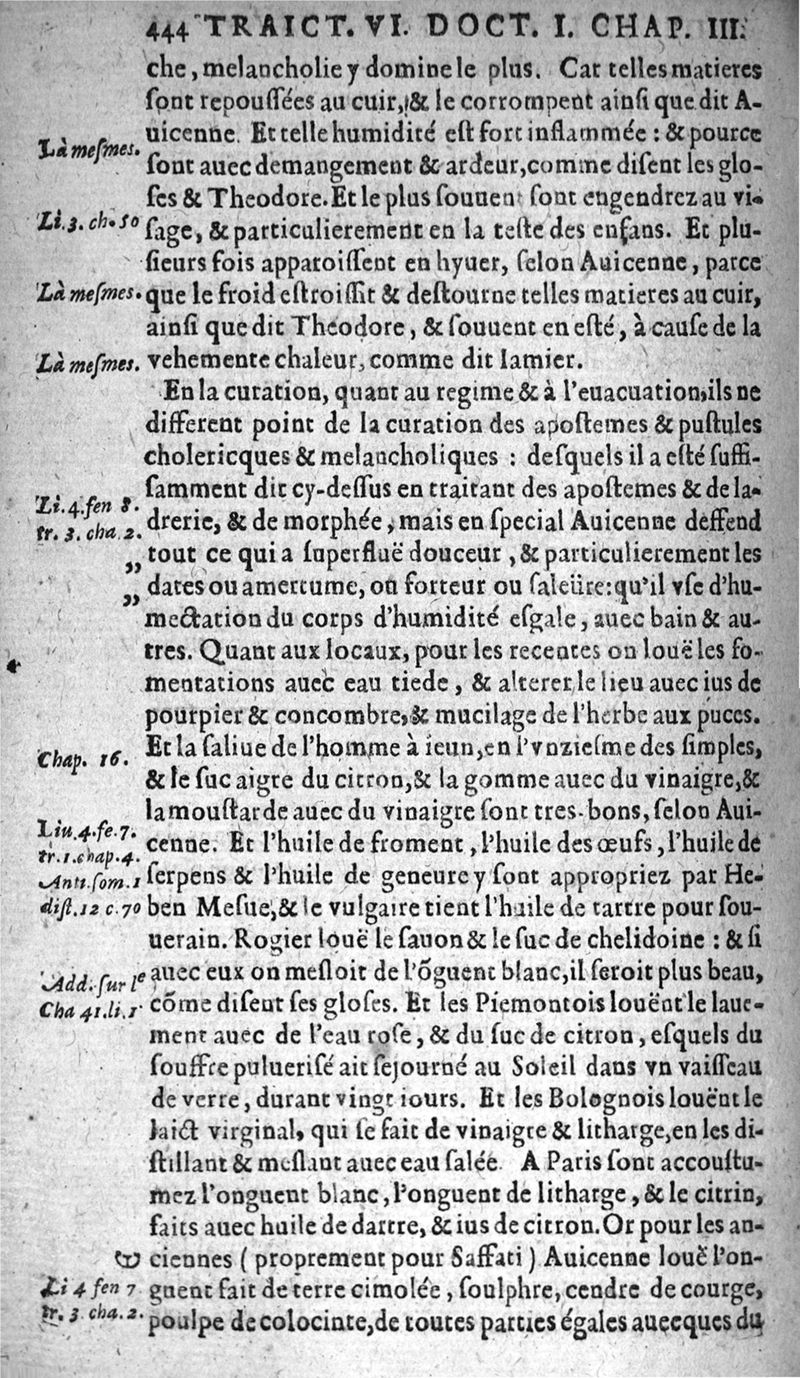 444 TRAICT. VI. DOCT. I. CHAP. III.
che, melancholie y domine le plus. Car telles matieres
ſont repouſſées au cuir, & le corrompent ainſi que dit A-
uicenne. Et telle humidité eſt fort inflammée : & pource
Là meſmes.
ſont auec demangement & ardeur, comme diſent les glo-
ſes & Theodore. Et le plus ſouuent ſont engendrez au vi-
Li.3. ch. 50
ſage, & particulierement en la teſte des enfans. Et plu-
ſieurs fois apparoiſſent en hyuer, ſelon Auicenne, parce
Là meſmes.
que le froid eſtroiſſit & deſtourne telles matieres au cuir,
ainſi que dit Theodore, & ſouuent en eſté, à cauſe de la
Là meſmes.
vehemente chaleur, comme dit Iamier.
En la curation, quant au regime & à l'euacuation, ils ne
different point de la curation des apoſtemes & puſtules
cholericques & melancholiques : deſquels il a eſté ſuffi-
ſamment dit cy-deſſus en traitant des apoſtemes & de la-
Li.4. fen 8.
tr. 3. cha. 2.
drerie, & de morphée, mais en ſpecial Auicenne deffend
„ tout ce qui a ſuperfluë douceur, & particulierement les
„ dates ou amertume, ou forteur ou ſaleüre: qu'il vſe d'hu-
mectation du corps d'humidité eſgale, auec bain & au-
tres. Quant aux locaux, pour les recentes on louë les fo-
mentations auec eau tiede, & alterer le lieu auec ius de
pourpier & concombre, & mucilage de l'herbe aux puces.
Chap. 16.
Et la ſaliue de l'homme à ieun, en l'vnzieſme des ſimples,
& le ſuc aigre du citron, & la gomme auec du vinaigre, &
la mouſtarde auec du vinaigre ſont tres-bons, ſelon Aui-
Liu.4.fe.7.
tr.1.chap.4.
cenne. Et l'huile de froment, l'huile des œufs, l'huile de
Anti.ſom.1
ſerpens & l'huile de geneure y ſont appropriez par He-
diſt.12 c.70
ben Meſue, & le vulgaire tient l'huile de tartre pour ſou-
uerain. Rogier louë le ſauon & le ſuc de chelidoine : & ſi
Add. ſur le
auec eux on meſloit de l'õguent blanc, il ſeroit plus beau,
Cha 41.li.1.
cõme diſent ſes gloſes. Et les Piemontois louënt le laue-
ment auec de l'eau roſe, & du ſuc de citron, eſquels du
ſouffre pulueriſé ait ſejourné au Soleil dans vn vaiſſeau
de verre, durant vingt iours. Et les Bolognois louënt le
laict virginal, qui ſe fait de vinaigre & litharge, en les di-
ſtillant & meſlant auec eau ſalée. A Paris ſont accouſtu-
mez l'onguent blanc, l'onguent de litharge, & le citrin,
faits auec huile de dartre, & ius de citron. Or pour les an-
ciennes ( proprement pour Saffati ) Auicenne louë l'on-
Li 4 fen 7
guent fait de terre cimolée, ſoulphre, cendre de courge,
tr. 3 cha. 2.
poulpe de colocinte, de toutes parties égales auecques du